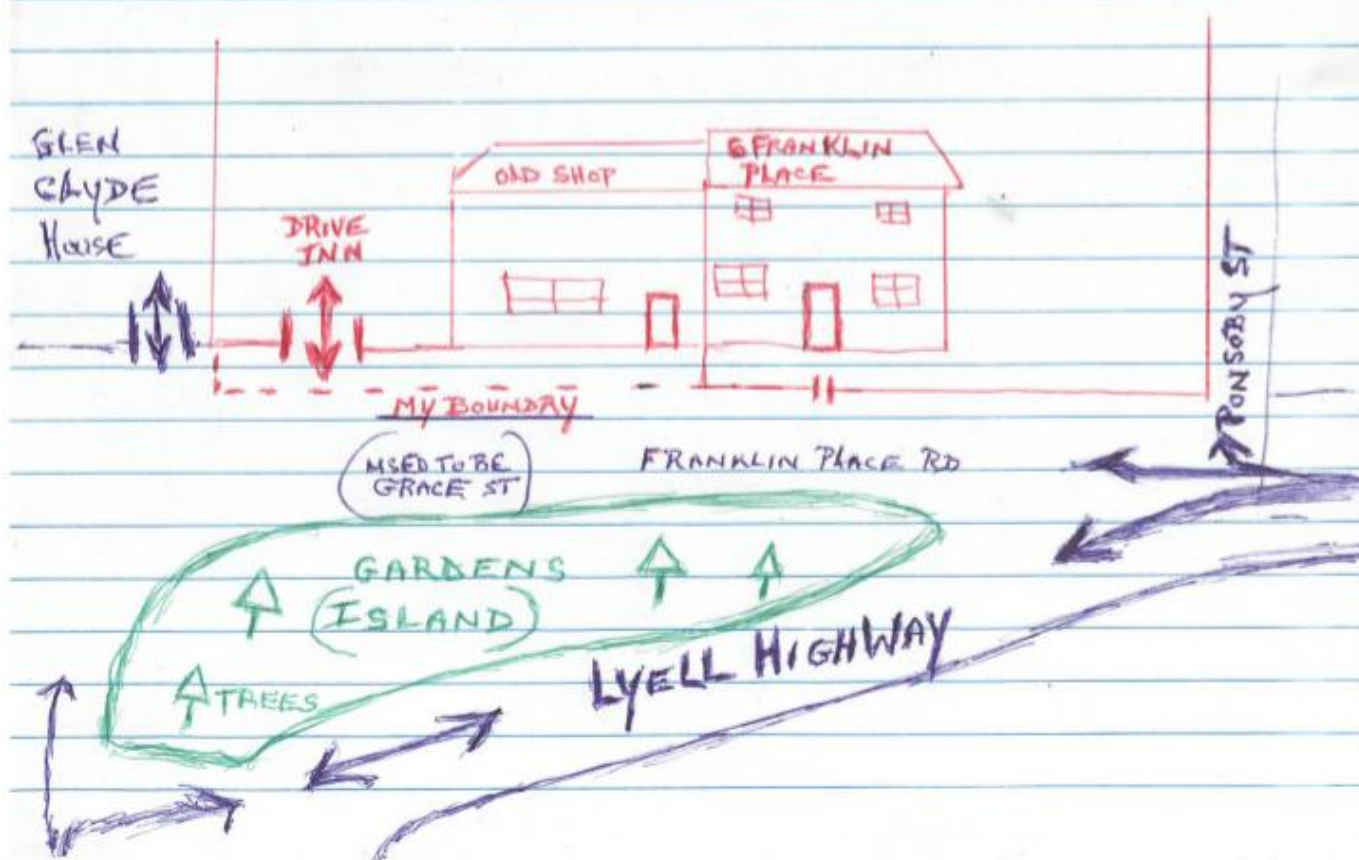 GLEN
CLYDE
HOUSE
DRIVE
INN
OLD SHOP
6 FRANKLIN
PLACE
PONSOBY ST
MY BOUNDRY
(USED TO BE
GRACE ST)
FRANKLIN PLACE RD
GARDENS
(ISLAND)
TREES
LYELL HIGHWAY